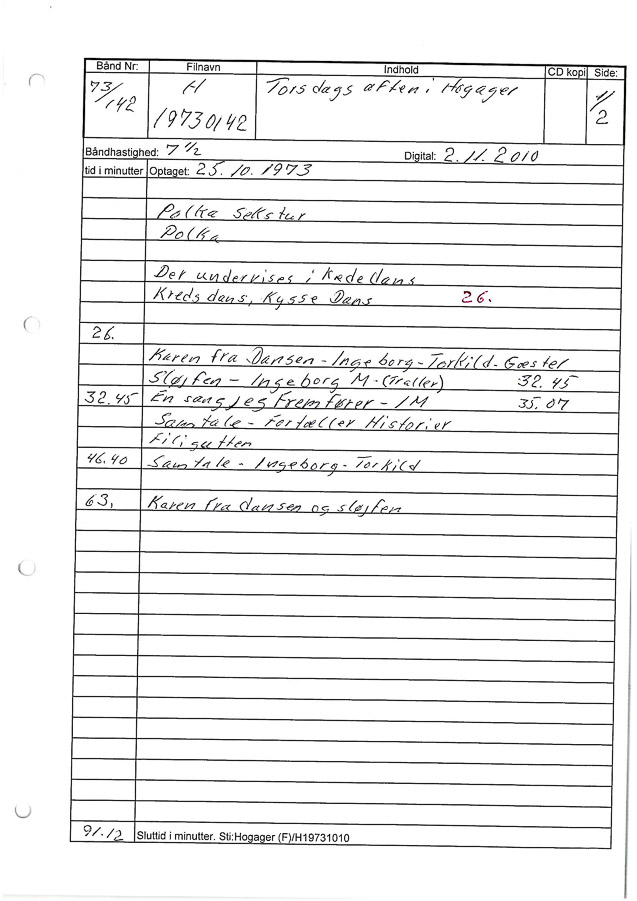 Bånd Nr: Filnavn Indhold CD kopi Side:
73/142 H Torsdags aften i Hogager 1/2
19730142
Båndhastighed: 7 1/2 Digital: 2.11.2010
tid i minutter Optaget: 25.10.1973
Polka Sekstur
Polka
Der undervises i Kædedans
Kredsdans, Kysse Dans 26.
26.
Karen fra Dansen - Ingeborg - Torkild - Gæster
Sløjfen - Ingeborg M - (Traller) 32.45
32.45 En sang jeg Fremfører - IM 35.07
Samtale - Fortæller Historier
Filigutten
46.40 Samtale - Ingeborg - Torkild
63, Karen fra dansen og sløjfen
91.12 Sluttid i minutter. Sti:Hogager (F)/H19731010